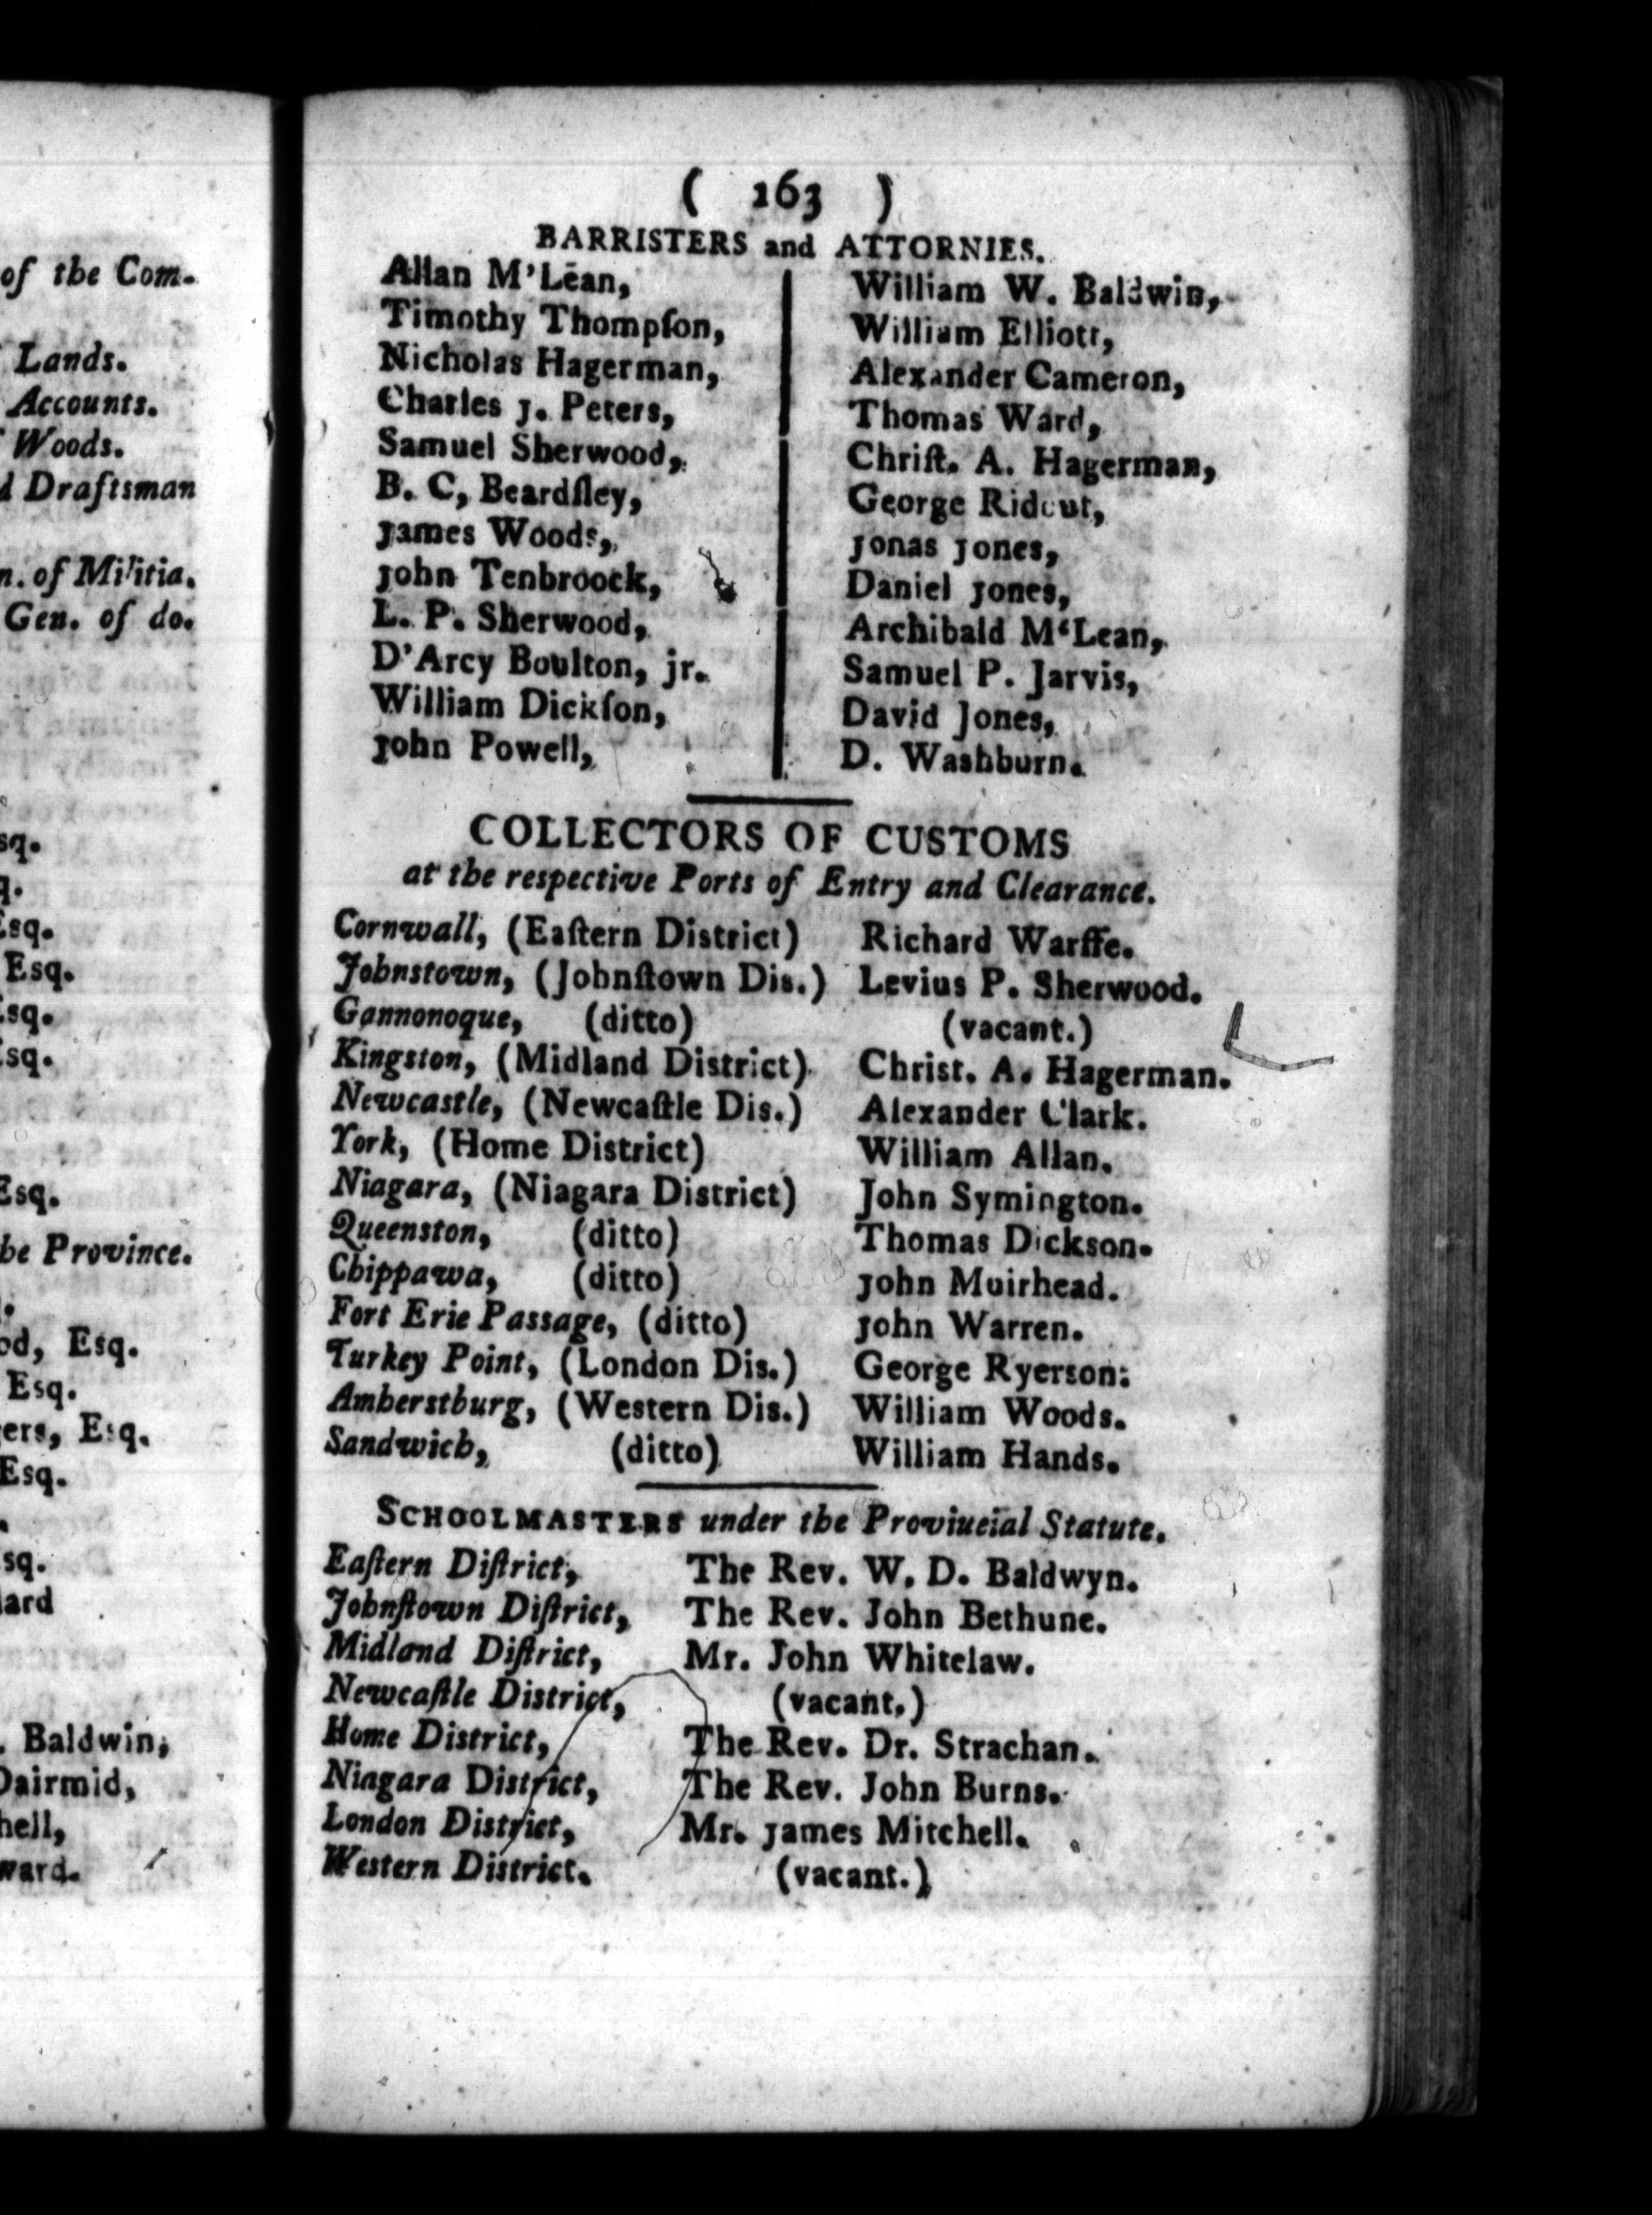 of the Com-
Lands.
Accounts.
Woods.
Draftsman
of Militia.
Gen. of do.
Esq.
Esq.
Esq.
be Province.
Esq.
Esq.
Esq.
Esq.
Baldwin,
( 163 )
BARRISTERS and ATTORNIES.
Allan M'Lean,
Timothy Thompſon,
Nicholas Hagerman,
Charles J. Peters,
Samuel Sherwood,
B. C, Beardſley,
James Woods,
John Tenbroock,
L. P. Sherwood,
D'Arcy Boulton, jr.
William Dickſon,
John Powell,
William W. Baldwin,
William Elliott,
Alexander Cameron,
Thomas Ward,
Chriſt. A. Hagerman,
George Ridout,
Jonas Jones,
Daniel Jones,
Archibald M‘Lean,
Samuel P. Jarvis,
David Jones,
D. Washburn.
COLLECTORS OF CUSTOMS
at the respective Ports of Entry and Clearance.
Cornwall, (Eaſtern District) Richard Warffe.
Johnstown, (Johnſtown Dis.) Levius P. Sherwood.
Gannonoque, (ditto) (vacant.)
Kingston, (Midland District) Christ. A. Hagerman.
Newcastle, (Newcaſtle Dis.) Alexander Clark.
York, (Home District) William Allan.
Niagara, (Niagara District) John Symington.
Queenston, (ditto) Thomas Dickson.
Chippawa, (ditto) John Muirhead.
Fort Erie Passage, (ditto) John Warren.
Turkey Point, (London Dis.) George Ryerson:
Amherstburg, (Western Dis.) William Woods.
Sandwich, (ditto) William Hands.
SCHOOLMASTERS under the Proviueial Statute.
Eaſtern Diſtrict, The Rev. W. D. Baldwyn.
Johnſtown Diſtrict, The Rev. John Bethune.
Midland Diſtrict, Mr. John Whitelaw.
Newcaſtle District, (vacant.)
Home District, The Rev. Dr. Strachan.
Niagara District, The Rev. John Burns.
London District, Mr. James Mitchell.
Western District. (vacant.)